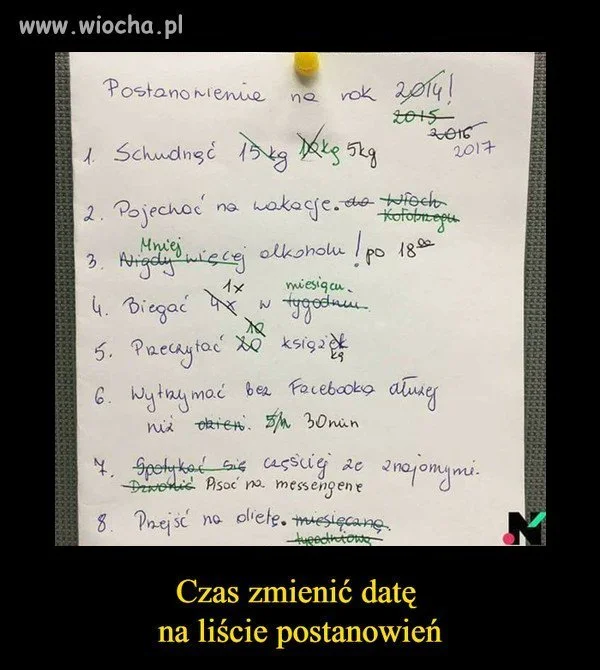 www.wiocha.pl
Postanowienie na rok 2014!
2015
2016
2017
1. Schudnąć 15 kg 10kg 5kg
2. Pojechać na wakacje. do Włoch
Kołobrzegu
Mniej
3. Nigdy więcej alkoholu! po 18⁰⁰
1x miesiącu.
4. Biegać 4x w tygodniu.
10
5. Przeczytać 20 książek
kę
6. Wytrzymać bez Facebooka dłużej
niż dzień. 5h 30min
7. Spotykać się częściej ze znajomymi.
Dzwonić Pisać na messengerze
8. Przejść na dietę. miesięczną.
tygodniową
N
Czas zmienić datę
na liście postanowień